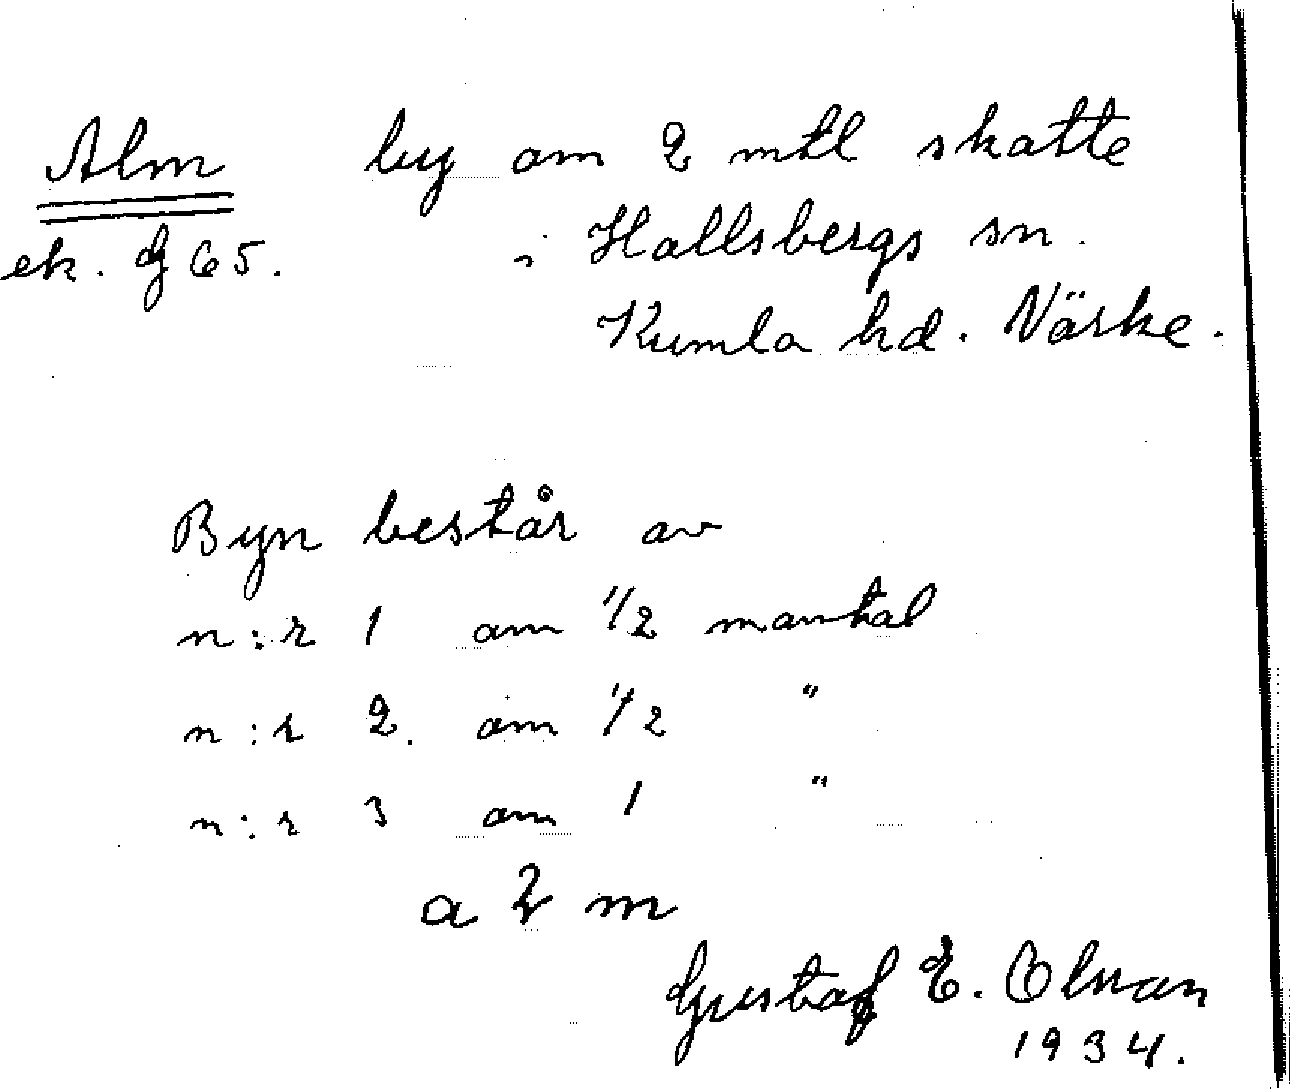 Alm by om 2 mtl skatte
ek. bl 65. i Hallsbergs sn.
Kumla hd. Närke.
Byn består av
n:r 1 om 1/2 mantal
n:r 2. om 1/2 "
n:r 3 om 1 "
a 2 m
Gustaf E. Olsson
1934.